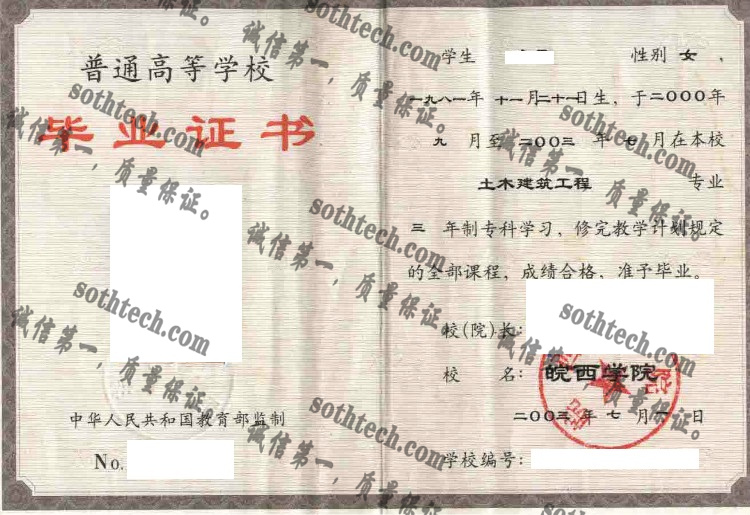 普通高等学校
毕业证书
中华人民共和国教育部监制
No.
学生 性别 女 ,
一九八一年 十一月二十一日生，于二〇〇〇年
九 月至 二〇〇三 年 七 月在本校
土木建筑工程 专业
三 年制专科学习，修完教学计划规定
的全部课程，成绩合格，准予毕业。
校(院)长:
校 名: 皖西学院
二〇〇三 年 七 月 一 日
学校编号:
sothtech.com
诚信第一，质量保证。